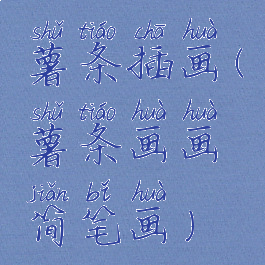 shǔ tiáo chā huà
薯条插画(
shǔ tiáo huà huà
薯条画画
jiǎn bǐ huà
简笔画)